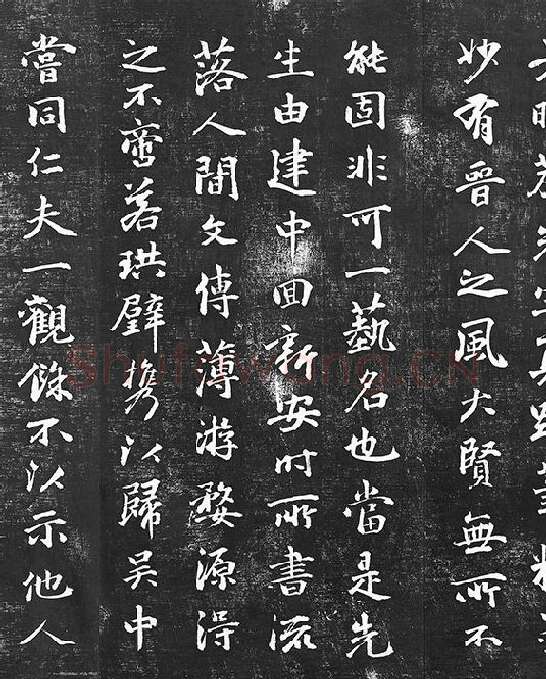 晦菴先生真跡筆精墨
妙有晉人之風大賢無所不
能固非可一藝名也當是先
生由建中回新安时所書流
落人間文傳薄游婺源得
之不啻若珙璧携以歸吴中
嘗同仁夫一觀餘不以示他人
Shufawang.CN